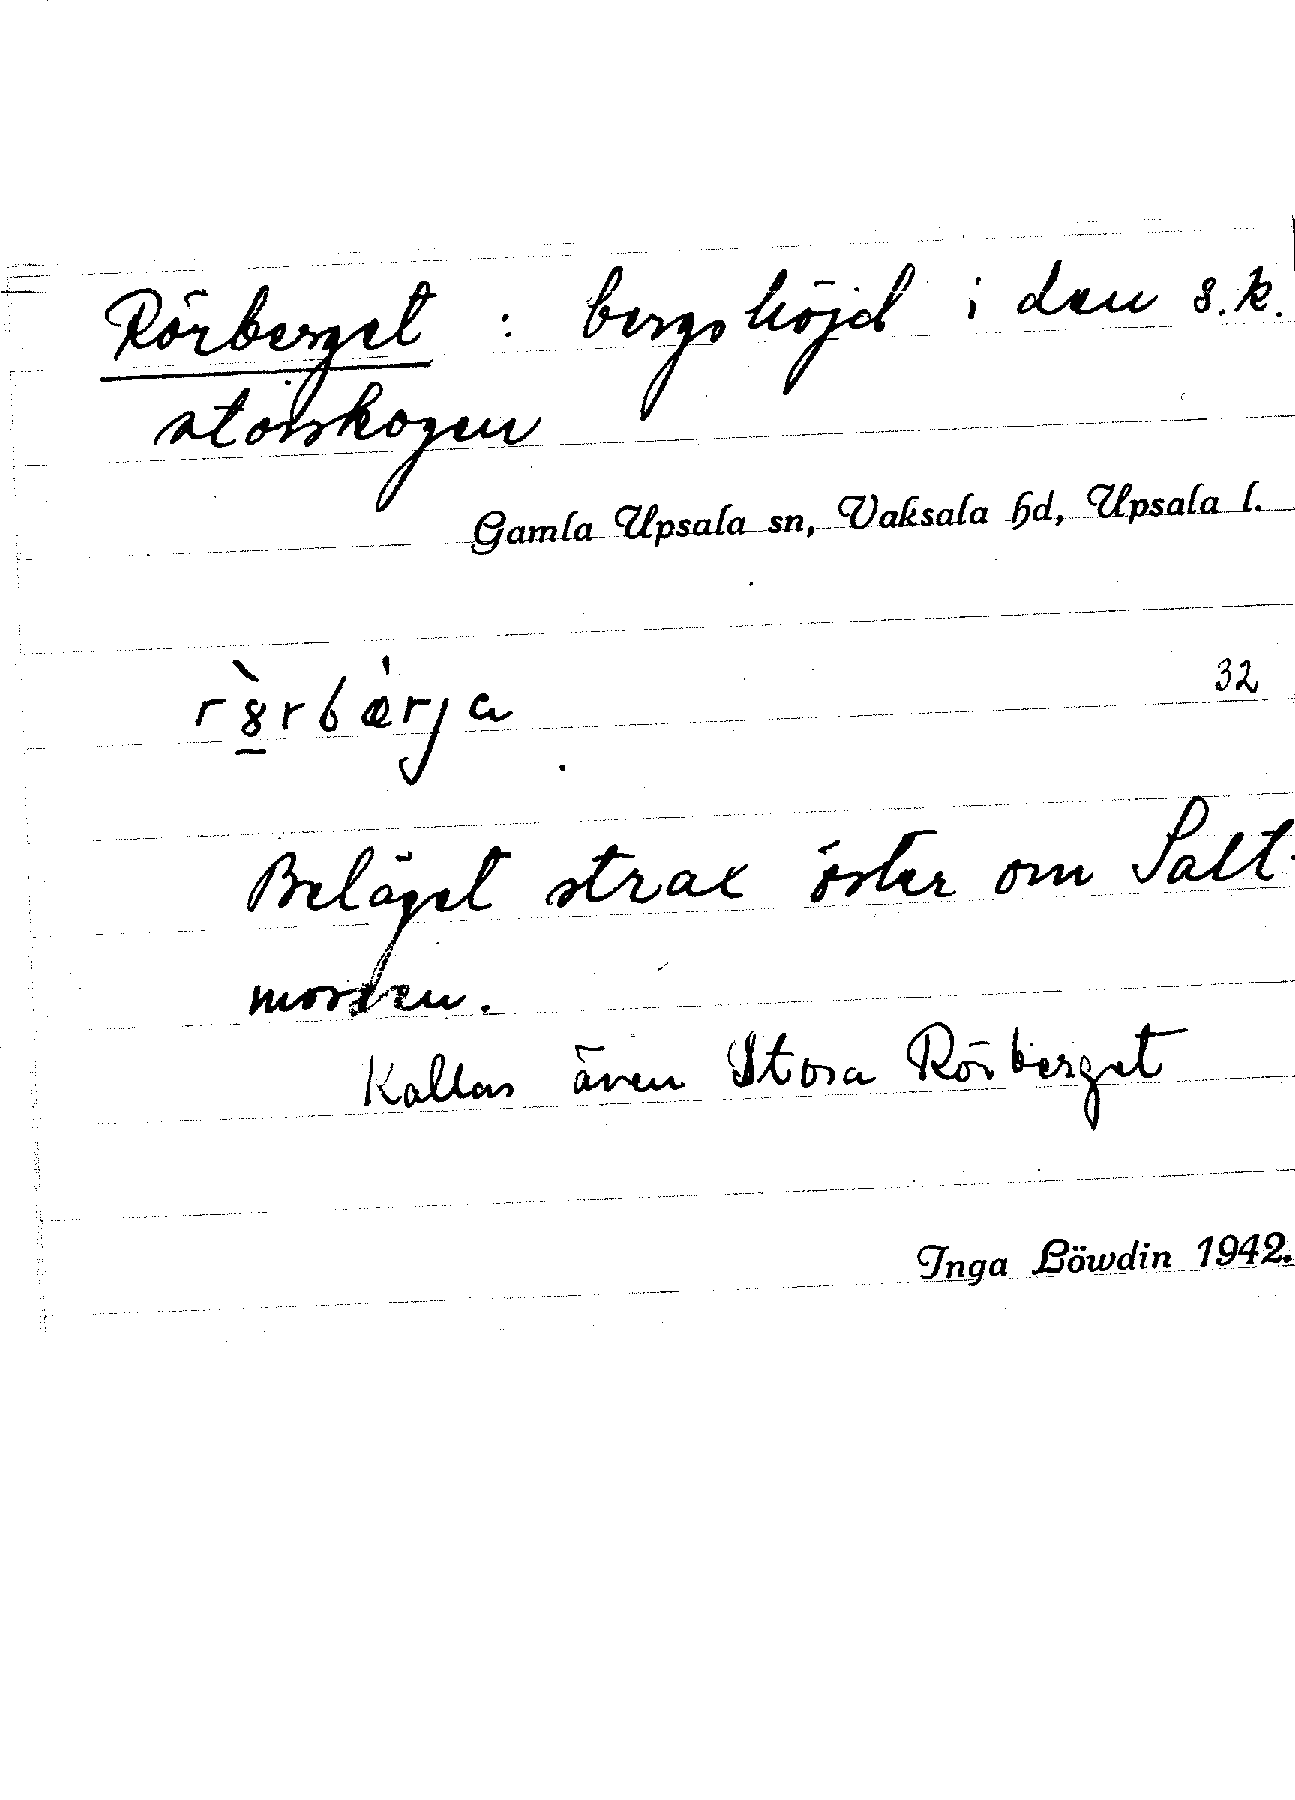 Rörberget : bergshöjd i den s.k.
storskogen
Gamla Upsala sn, Vaksala hd, Upsala l.
r8̀rbæ̀rja 32
Beläget strax öster om Salt-
mossen.
Kallas även Stora Rörberget
Inga Löwdin 1942.